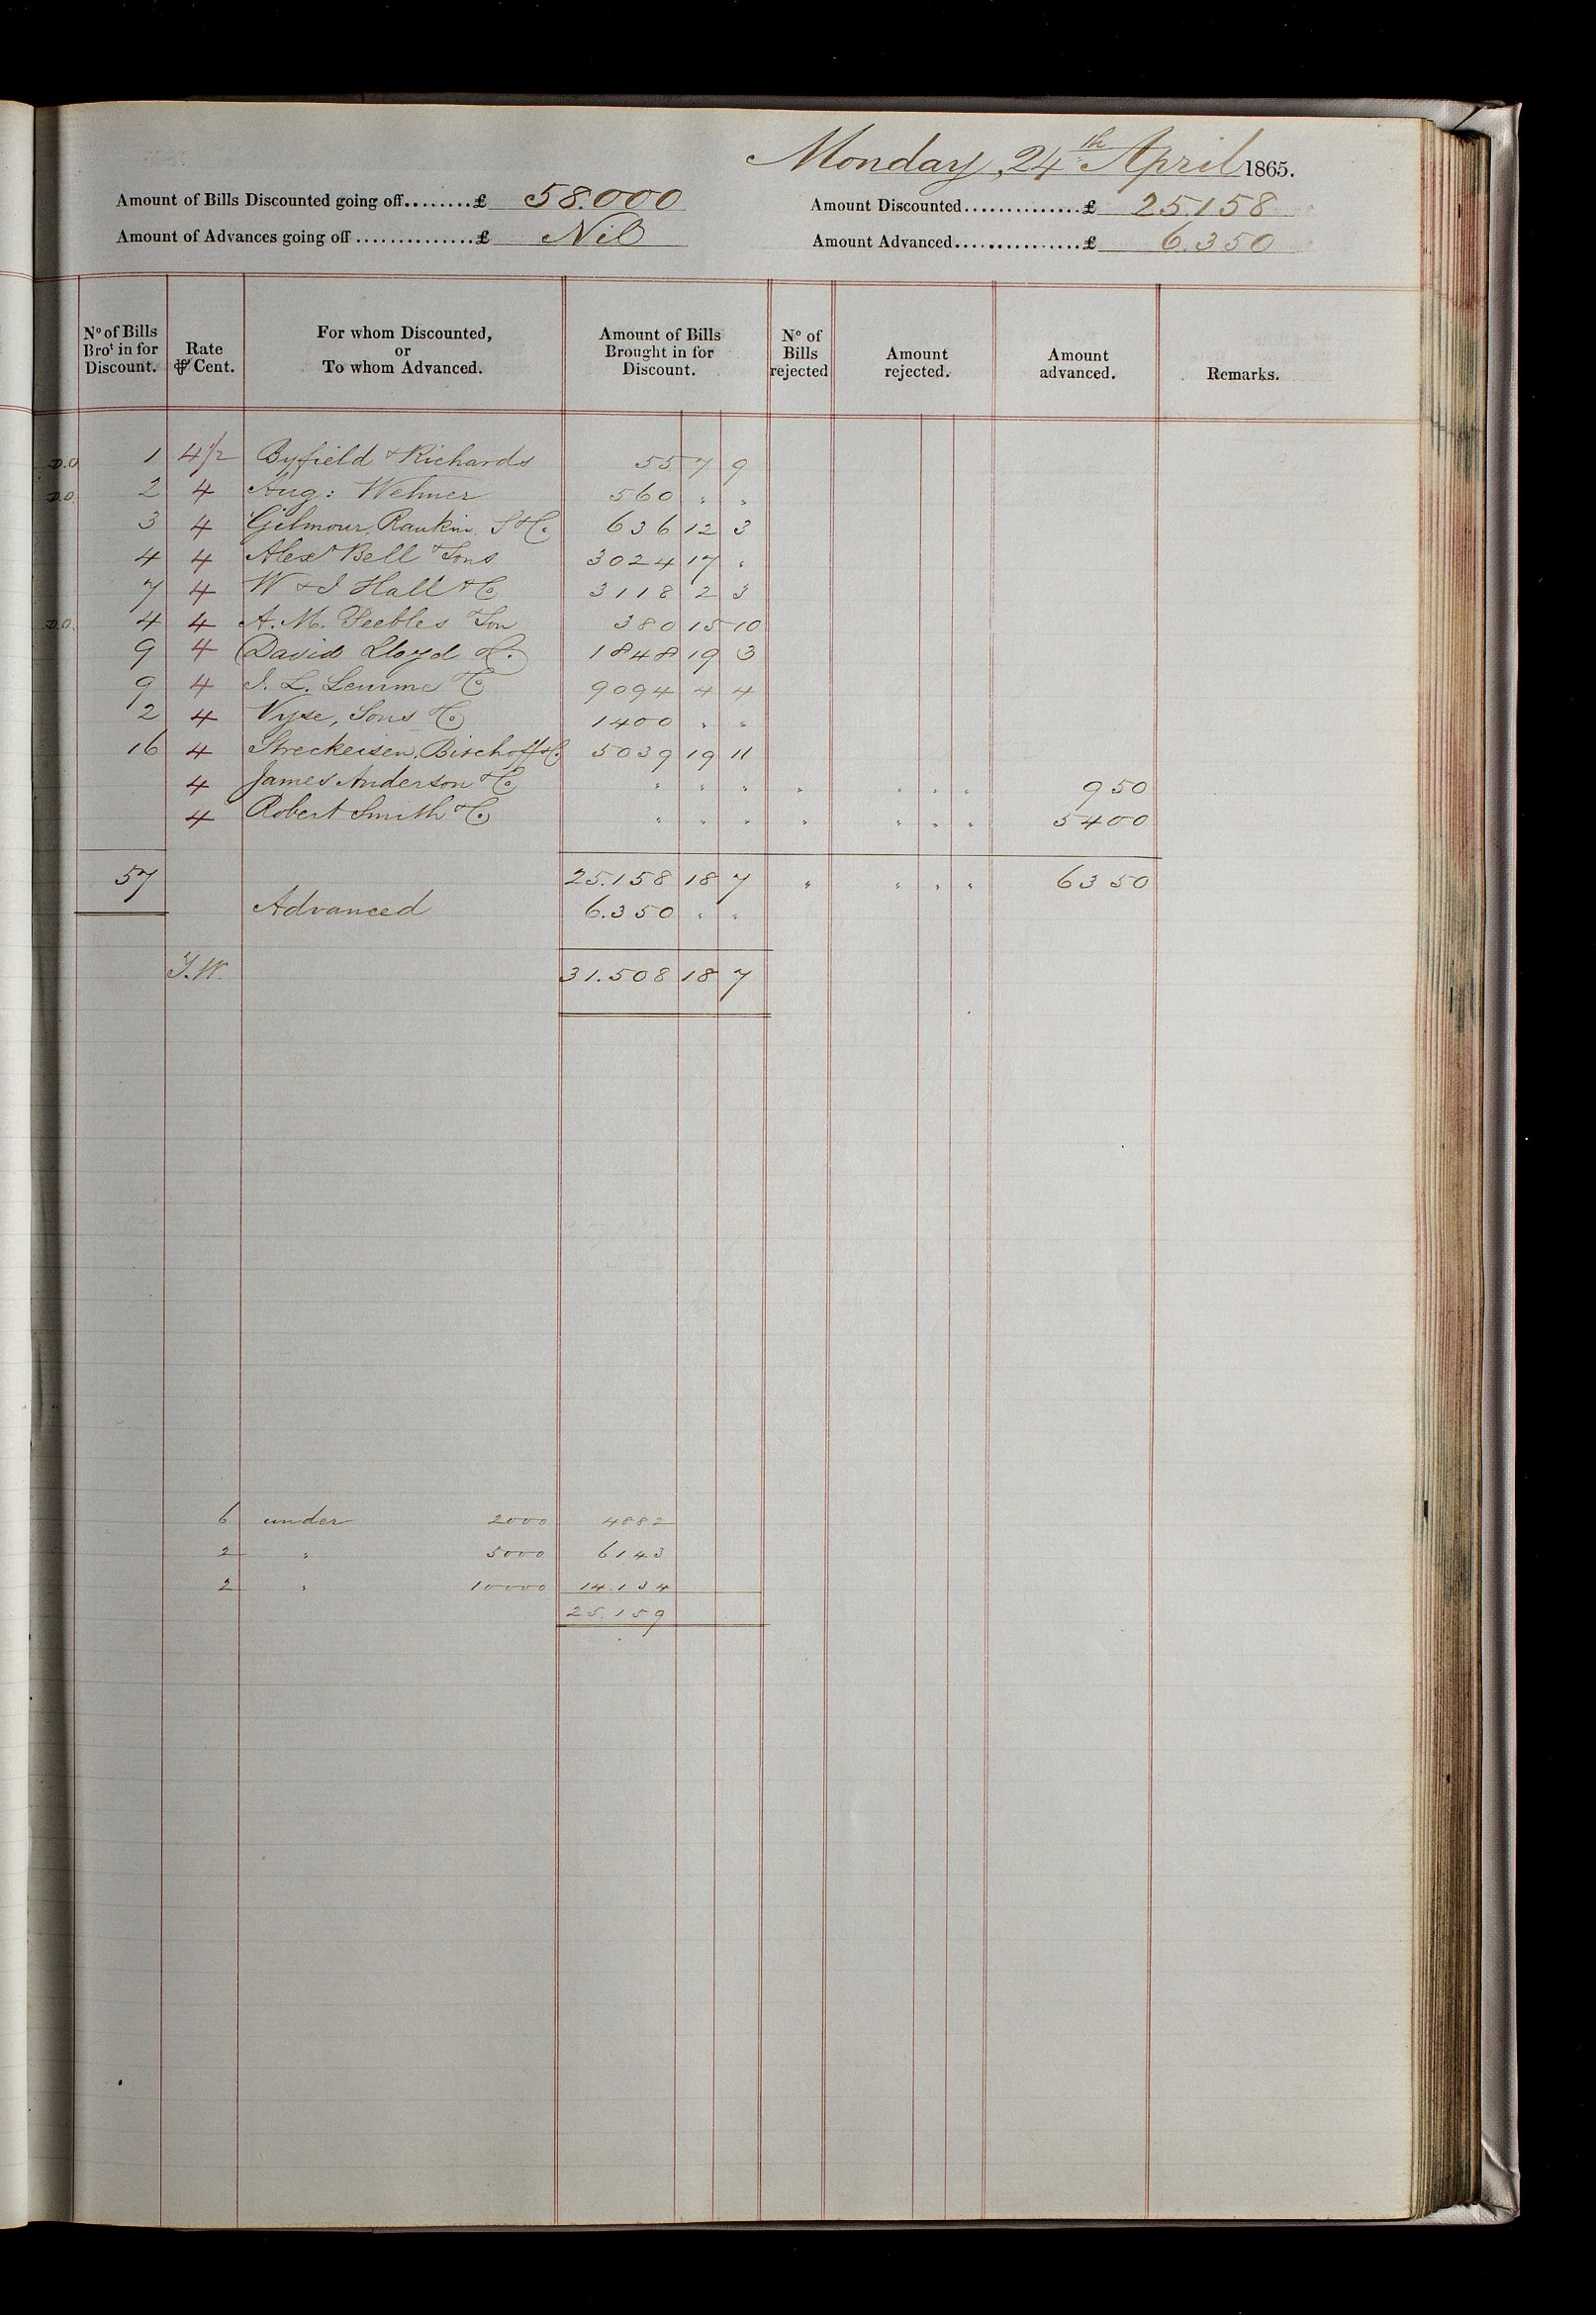 Monday, 24th April 1865.
Amount of Bills Discounted going off........£ 58.000
Amount Discounted..............£ 25.158
Amount of Advances going off..............£ Nil
Amount Advanced................£ 6.350
No of Bills Brot in for Discount. Rate ⅌ Cent. For whom Discounted, or To whom Advanced. Amount of Bills Brought in for Discount. No of Bills rejected Amount rejected. Amount advanced. Remarks.
D.O. 1 4 1/2 Byfield & Richards 55 7 9
D.O. 2 4 Aug: Wehner 560 " "
3 4 Gilmour, Rankin, S & Co 636 12 3
4 4 Alexr Bell & Sons 3024 17 "
7 4 W & J Hall & Co 3118 2 3
D.O. 4 4 A. M. Peebles & Son 380 15 10
9 4 David Lloyd & Co. 1848 19 3
9 4 J. L. Lemme & Co 9094 4 4
2 4 Vyse, Sons & Co 1400 " "
16 4 Streckeisen, Bischoff & Co 5039 19 11
4 James Anderson & Co " " " " " " " 950
4 Robert Smith & Co " " " " " " " 5400
57 25.158 18 7 " " " " 6350
Advanced 6.350 " "
31.508 18 7
6 under 2000 4882
2 " 5000 6143
2 " 10000 14.134
25.159